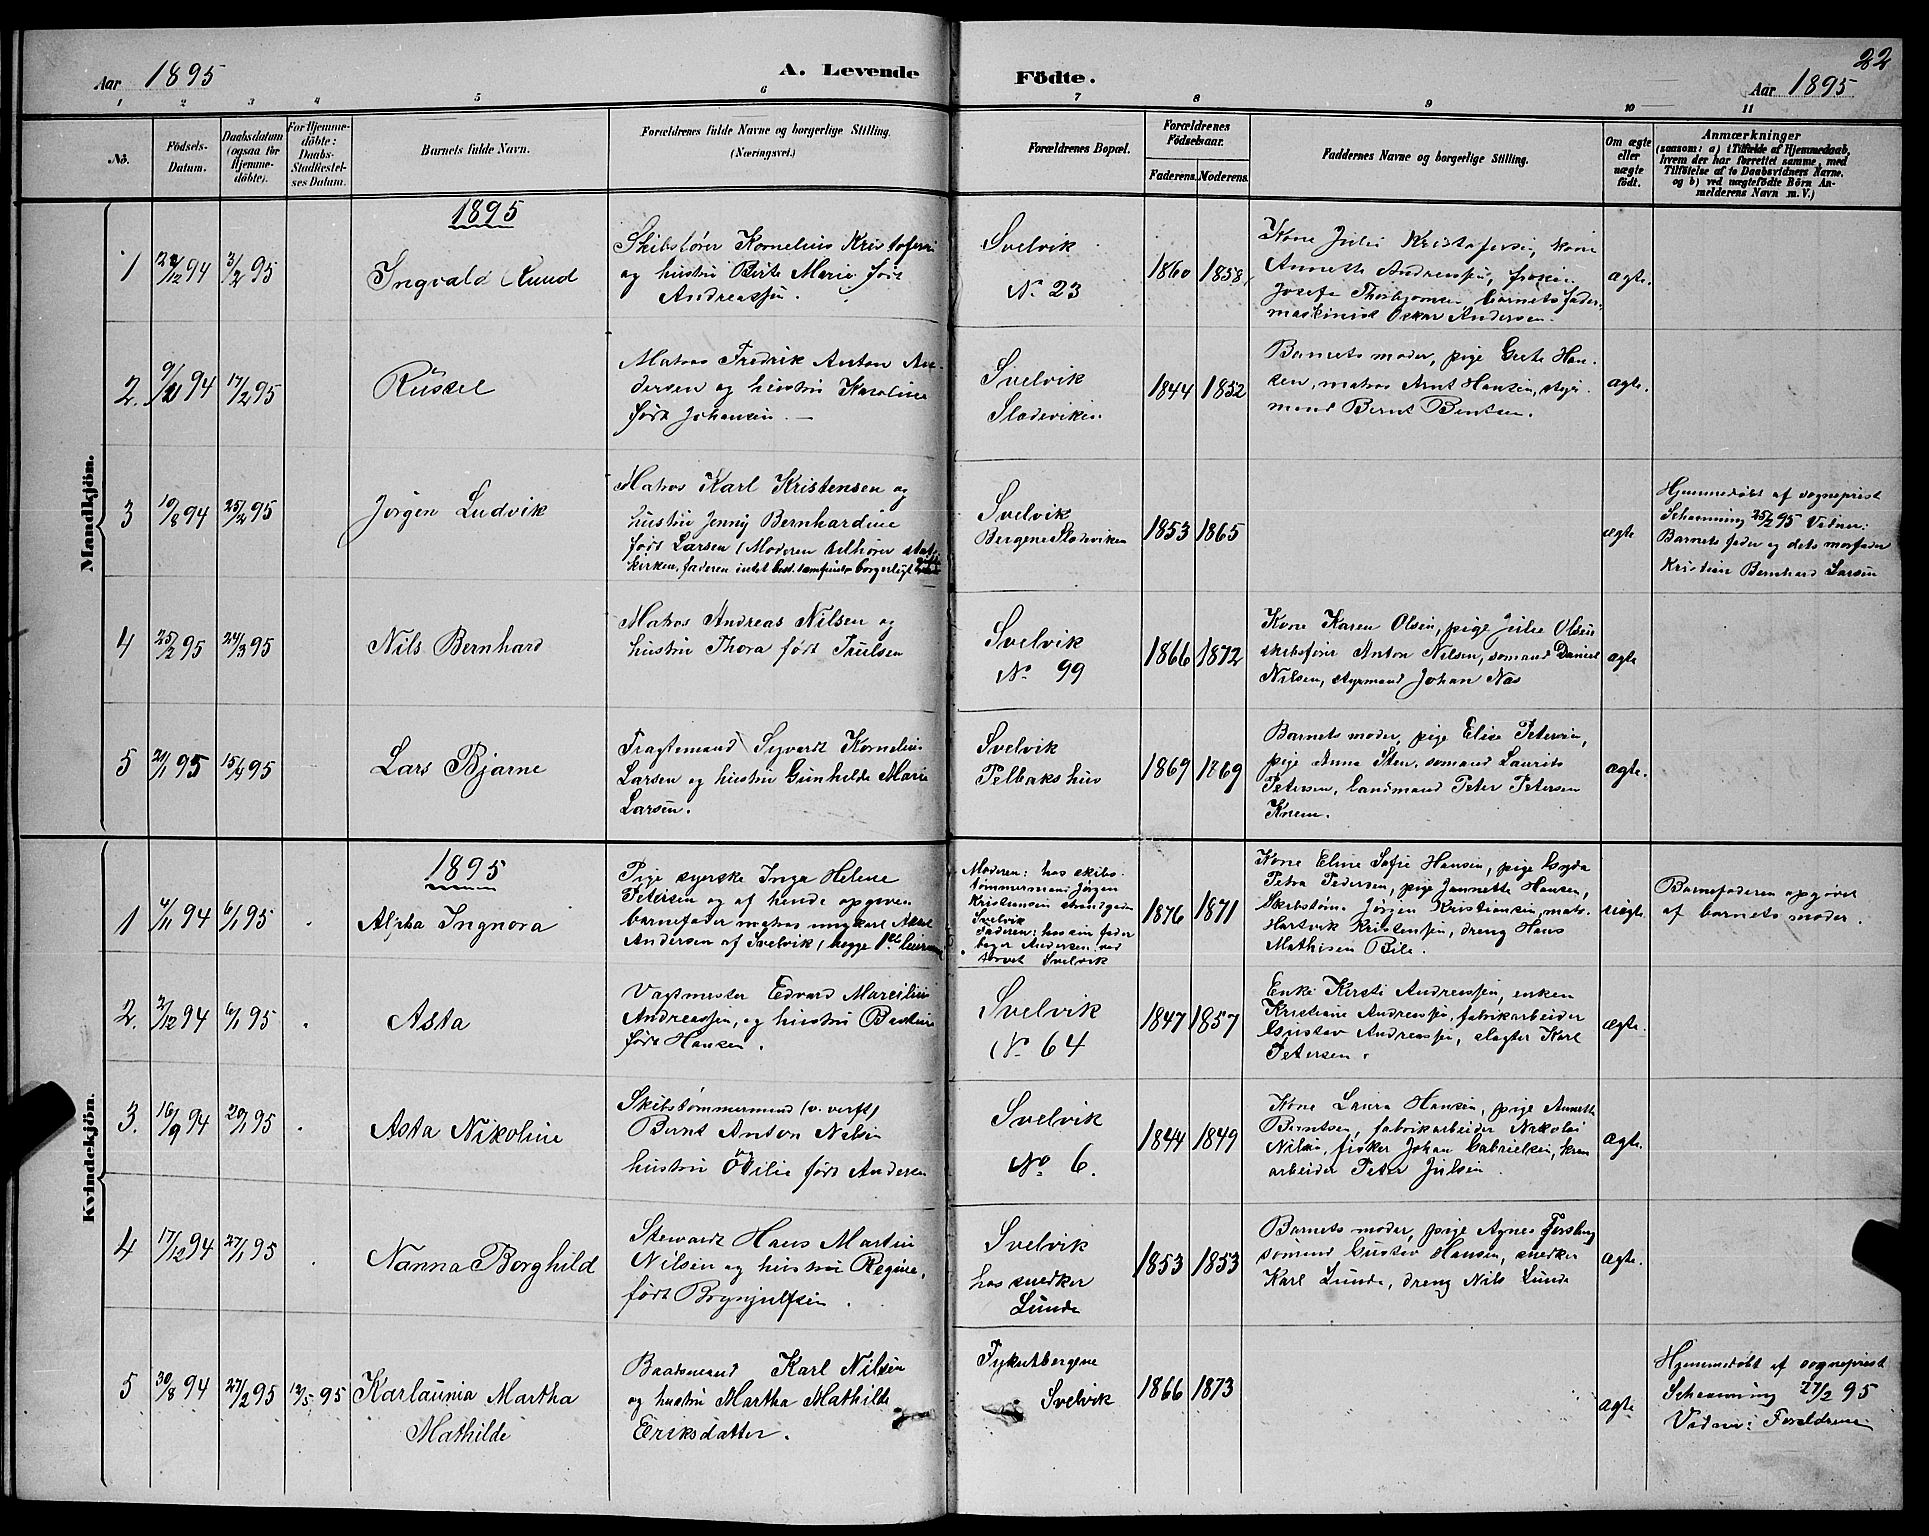 22
Aar 1895
A. Levende
Födte.
Aar 1895
1 2 3 4 5 6 7 8 9 10 11
No.
Födsels-
Datum.
Daabsdatum
(ogsaa for
Hjemme-
döbte).
For Hjemme-
döbte:
Daabs-
Stadfæstel-
ses Datum.
Barnets fulde Navn.
Forældrenes fulde Navne og borgerlige Stilling.
(Næringsvei.)
Forældrenes Bopæl.
Forældrenes
Födselsaar.
Faderens. Moderens.
Faddernes Navne og borgerlige Stilling.
Om ægte
eller
uægte
födt.
Anmærkninger
(saasom: a) i Tilfælde af Hjemmedaab,
hvem der har forrettet samme, med
Tilföielse af to Daabsvidners Navne,
og b) ved uægtefödte Börn An-
melderens Navn m. V.)
Mandkjön.
1895
1
22/12 94
3/2 95
Ingvald Knud
Skibsfører Kornelius Kristofersen
og hustru Berte Marie født
Andreassen.
Svelvik
No 23
1860 1858
Kone Julie Kristofersen, kone
Annette Andreassen, frøken
Josefa Thorbjornsen, barnets fader,
maskinist Oskar Andersen.
ægte.
2.
94
17/2 95
Russel
Matros Fredrik Anton An-
dersen og hustru Karoline
født Johansen. —
Svelvik
Sladeviken
1844 1852
Barnets moder, pige Grete Han-
sen, matros Arnt Hansen, styr-
mand Bernt Bentsen.
ægte.
3
10/8 94
25/2 95
Jørgen Ludvik
Matros Karl Kristensen og
hustru Jenny Bernhardine
født Larsen (Moderen tilhører stats-
kirken, faderen intet best. samfund - borgerligt
Svelvik
Bergene Sladeviken
1853 1865
ægte
Hjemmedøbt af sogneprest
Schanning 25/2 95 Vidner:
Barnets fader og dets morfader
Kristian Bernhard Larsen
4
25/2 95
24/3 95
Nils Bernhard
Matros Andreas Nilsen og
hustru Thora født Truelsen
Svelvik
No 99
1866 1872
Kone Karen Olsen, pige Julie Olsen
skibsfører Anton Nilsen, sømand Daniel
Nilsen, styrmand Johan Næs
ægte
5
95
15/4 95
Lars Bjarne
Fragtemand Syvardt Kornelius
Larsen og hustru Gunhilde Marie
Larsen.
Svelvik
Pelbaks hus
1869 1869
Barnets moder, pige Elise Petersen,
pige Anna Sten, sømand Laurits
Petersen, landmand Peter Petersen
Knem.
ægte.
Kvindekjön.
1895
1
4/11 94
6/1 95
Alpha Ingnora
Pige syerske Inga Helene
Petersen og af hende opgiven
barnefader matros ungkarl Aksel
Andersen af Svelvik, begge 1ste leiermaal
Moderen: hos skibs-
tømmermand Jørgen
Kristiansen strandgaden
Svelvik
Faderen: hos sin fader
bager Andersen ved
torvet Svelvik
1876 1871
Kone Eline Sofie Hansen, pige Gyda
Petra Pedersen, pige Jannette Hansen,
Skibstøm. Jørgen Kristiansen, matr.
Hartvik Kristensen, dreng Hans
Mathisen Bile.
uægte
Barnefaderen opgivet
af barnets moder.
2.
2/12 94
6/1 95
Asta
Vagtmester Edvard Marcilius
Andreassen, og hustru Bastine
født Hansen.
Svelvik
No 64
1847 1857
Enke Kirsti Andreassen, enken
Kristiane Andreassen, fabrikarbeider
Gustav Andreassen, slagter Karl
Petersen.
ægte.
3.
16/9 94
20/1 95
Asta Nikoline
Skibstømmermand (v. verft)
Bernt Anton Nilsen
og
hustru Otilie født Andersen
Svelvik
No 6.
1844 1849
Kone Laura Hansen, pige Annette
Berntsen, fabrikarbeider Nikolai
Nilsen, fisker Johan Gabrielsen, krem
arbeider Peter Julsen
ægte.
4
17/12 94
27/1 95
Nanna Borghild
Stewardt Hans Martin
Nilsen og hustru Regine,
født Brynjulfsen.
Svelvik
hos snedker
Lunde
1853 1853
Barnets moder, pige Agnes Forsberg
sømand Gustav Hansen, snedker
Karl Lunde, dreng Nils Lunde
ægte.
5
30/8 94
27/2 95
12/5 95
Karlaunia Martha
Mathilde
Baadsmand Karl Nilsen
og hustru Martha Mathilde
Eriksdatter.
Tykutbergene
Svelvik
1866 1873
ægte
Hjemmedøbt af sogneprest
Schanning 27/2 95
Vidner: Forældrene